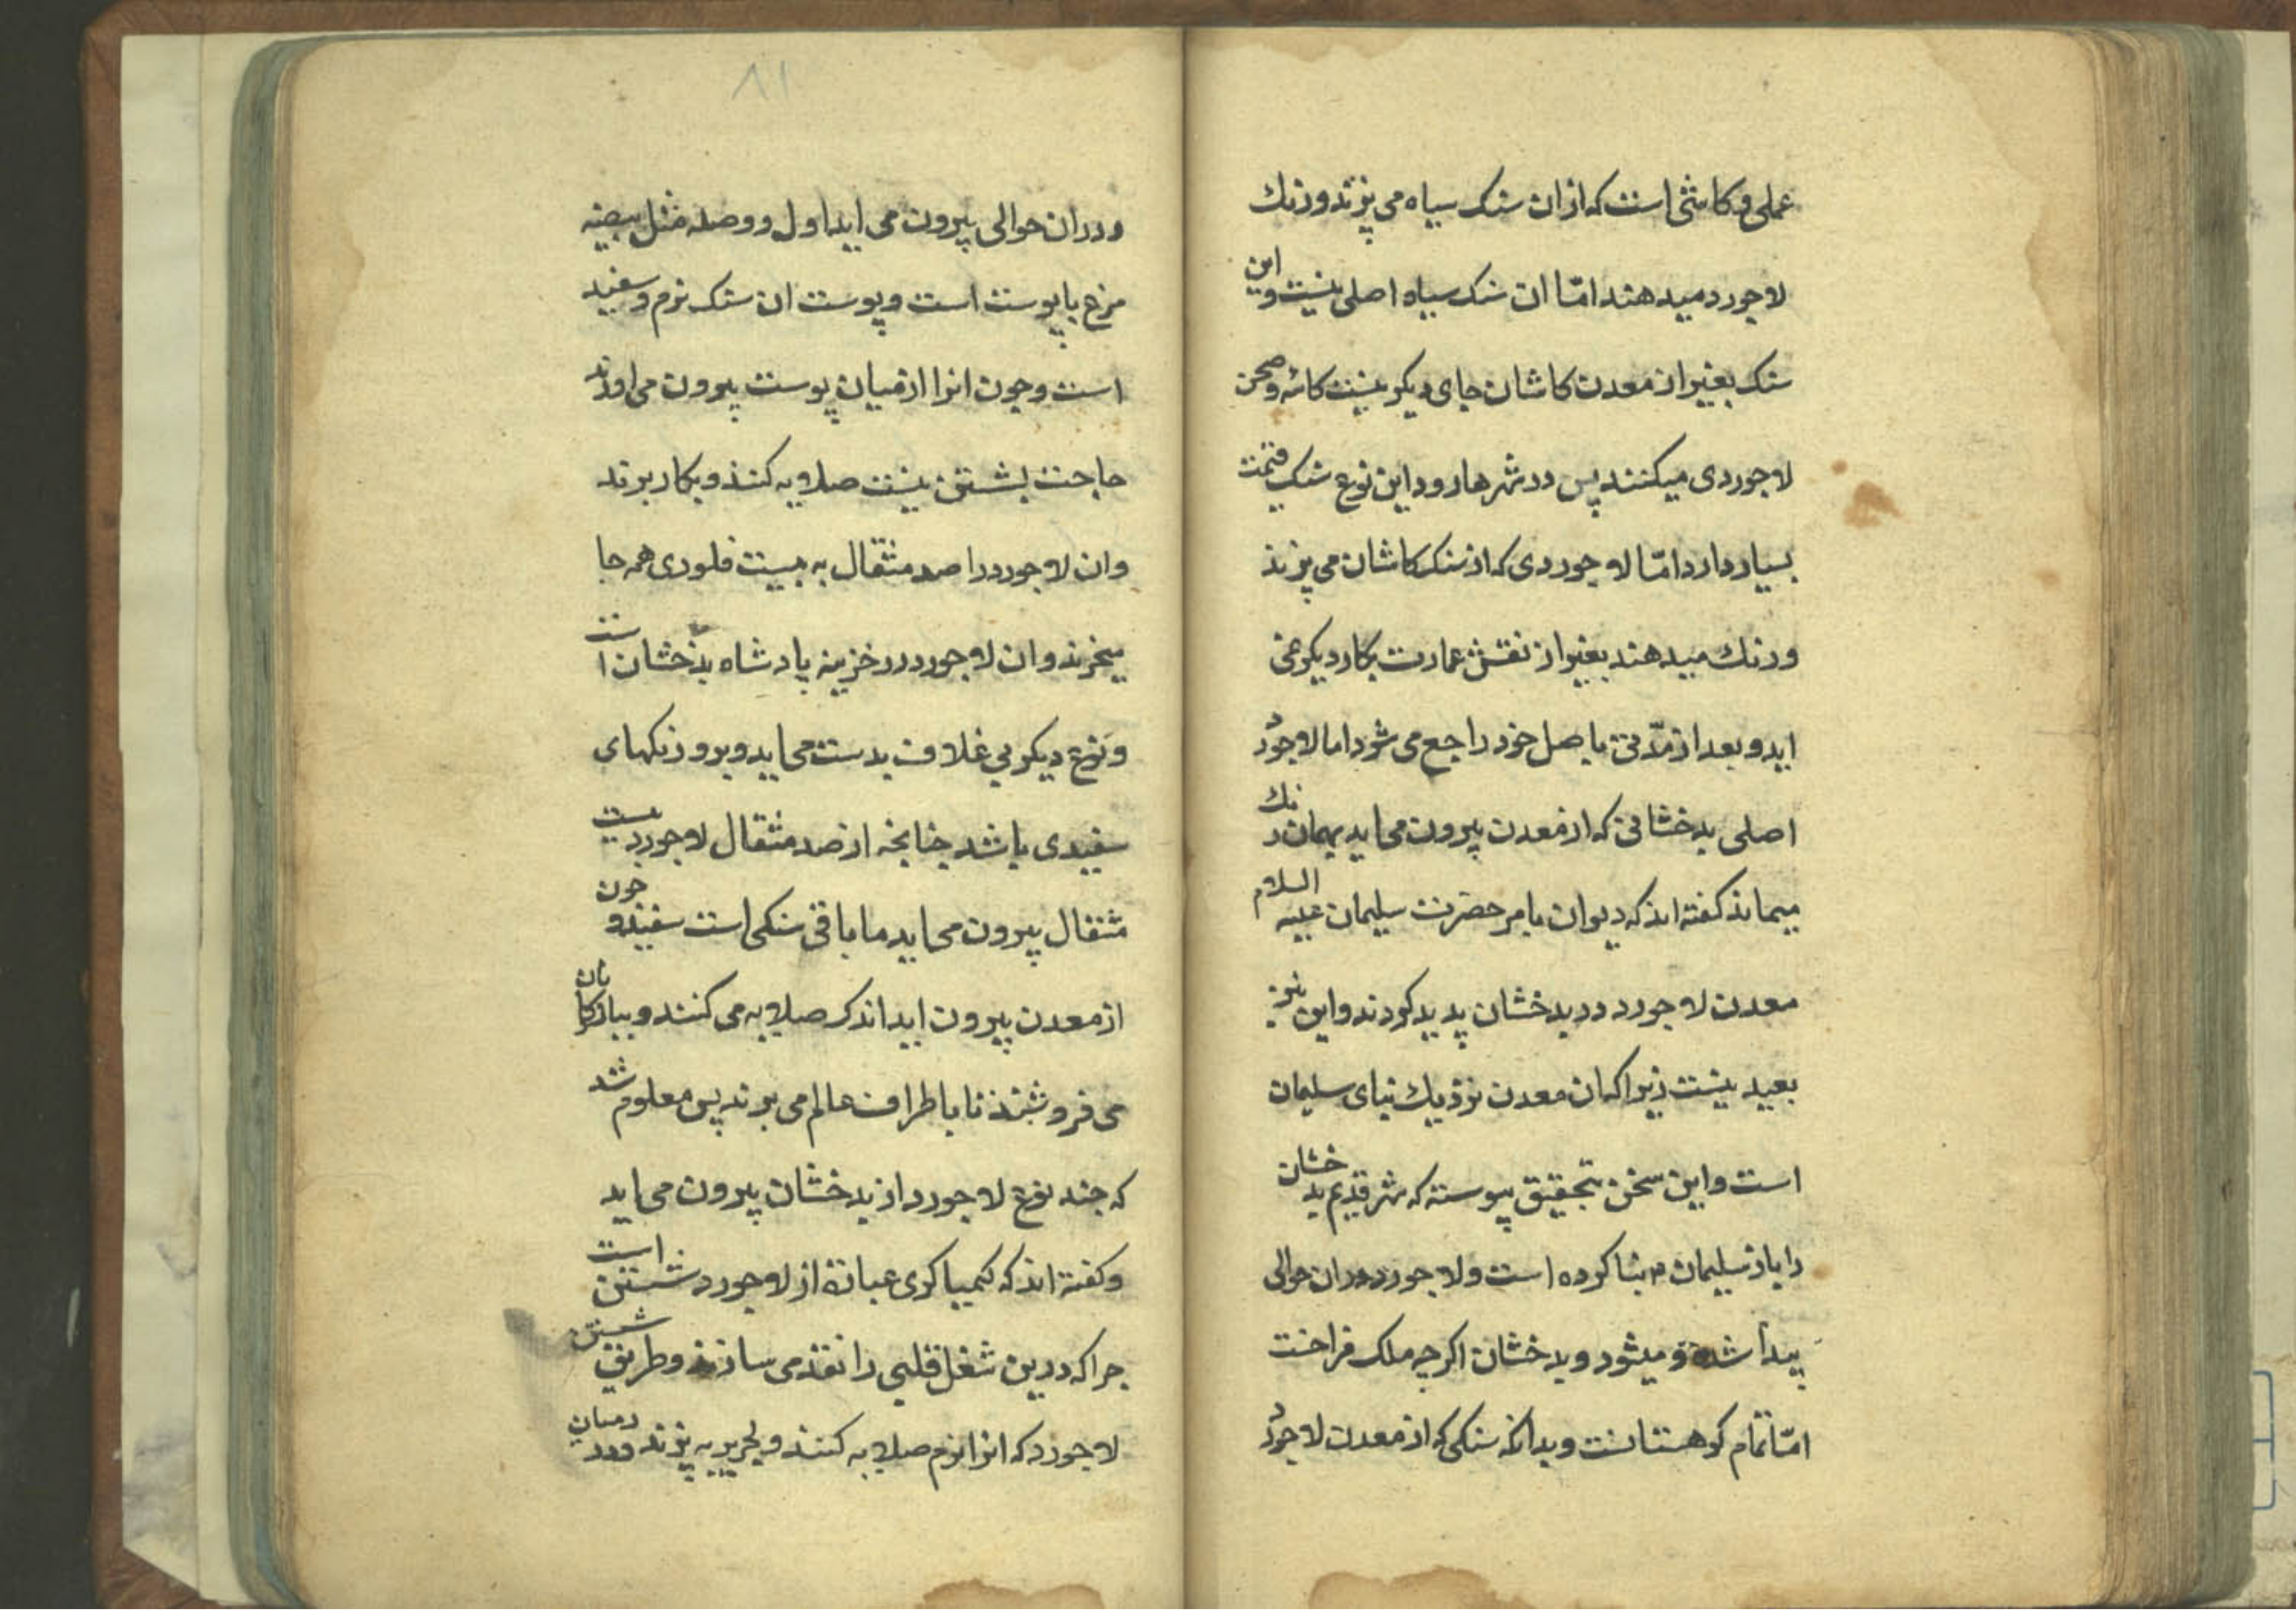 عملی و کاشی است که ازان سنک سیاه می پزند و رنك
لاجورد میدهند امّا ان سنک سیاه اصلی نیست و این
سنک بغیر از معدن کاشان جای دیکر نیست کاسه و صحن
لاجوردی میکنند پس در شهرها رود این نوع سنک قیمت
بسیار دارد امّا لاجوردی که از سنک کاشان می پزند
و رنك میدهند بغیر از نقش عمارت بکار دیکر نمی
اید و بعد از مدّتی باصل خود راجع می شود اما لاجورد
اصلی بدخشانی که از معدن بیرون می اید بهمان رنك
میماند کفته اند که دیوان بامر حضرت سلیمان علیه السلام
معدن لاجورد در بدخشان پدید کردند و این نیز
بعید نیست زیرا که ان معدن نزدیك بنای سلیمان
است و این سخن بتحقیق پیوسته که شهر قدیم بدخشان
را باز سلیمان م بنا کرده است و لاجورد دران حوالی
پیدا شده و میشود و بدخشان اکرچه ملک فراخست
امّا تمام کوهستانست و بدانکه سنکی که از معدن لاجورد
۸۱
و دران حوالی بیرون می اید اول و وصله مثل بیضه
مرغ با پوست است و پوست ان سنک نرم و سفید
است و چون انرا از میان پوست بیرون می اورند
حاجت بشستن نیست صلایه کنند و بکار برند
وان لاجورد را صد مثقال به بیست فلوری همه جا
میخرند وان لاجورد در خزینه پادشاه بدخشان است
و نوع دیکر بی غلاف بدست می اید و برو رنکهای
سفیدی باشد چنانچه از صد مثقال لاجورد بیست
مثقال بیرون می اید ما باقی سنکی است سفید و چون
از معدن بیرون اید اندک صلایه می کنند و ببازرکانان
می فروشند تا باطراف عالم می برند پس معلوم شد
که چند نوع لاجورد از بدخشان بیرون می اید
و کفته اند که کیمیاکری عبارة از لاجورد شستن است
چرا که درین شغل قلبی را نقد می سازند و طریق شستن
لاجورد که انرا نرم صلایه کنند و بحریر به پزند و در میان